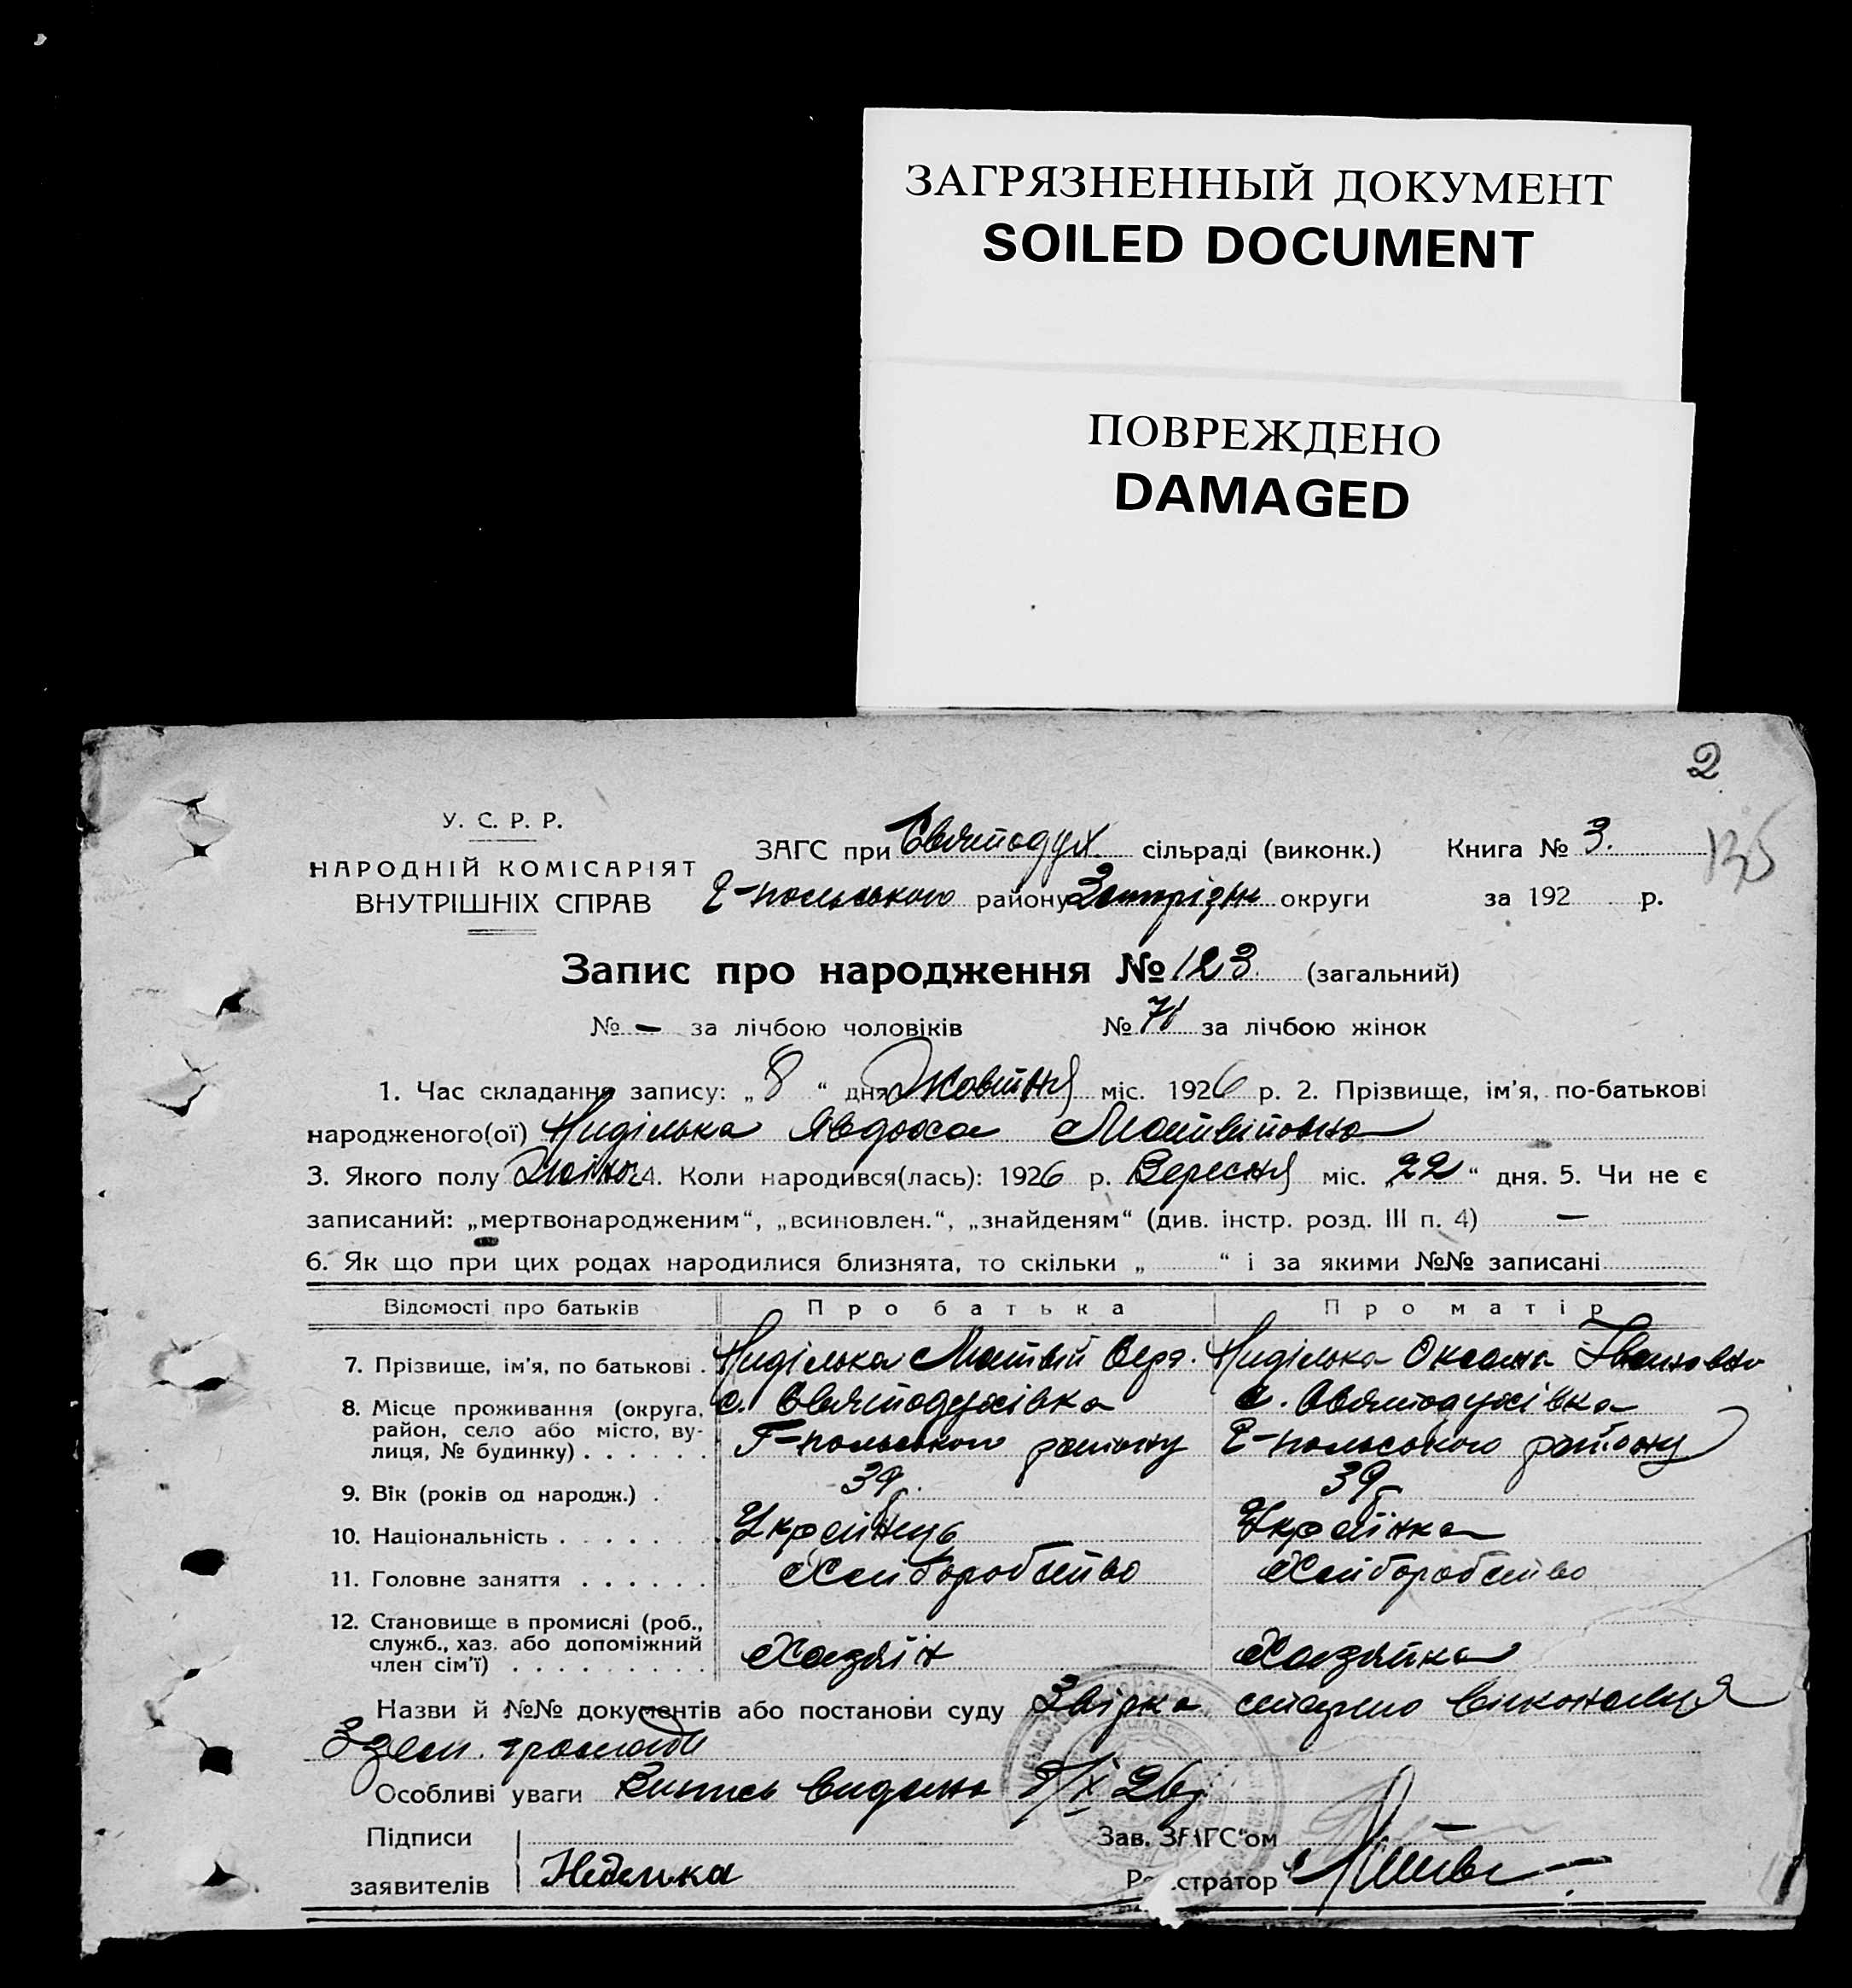 ЗАГРЯЗНЕННЫЙ ДОКУМЕНТ
SOILED DOCUMENT
ПОВРЕЖДЕНО
DAMAGED
2
135
У. С. Р. Р.
НАРОДНІЙ КОМІСАРІЯТ
ВНУТРІШНІХ СПРАВ
ЗАГС при Святодух. сільраді (виконк.) Книга № 3.
Г-польського району округи за 192 р.
Запис про народження № 123 (загальний)
№ — за лічбою чоловіків № 71 за лічбою жінок
1. Час складання запису: „8“ дня Жовтня міс. 1926 р. 2. Прізвище, ім'я, по-батькові
народженого(ої) Ниділька Явдоха Матвійовна
3. Якого полу Жіноч. 4. Коли народився(лась): 1926 р. Вересня міс. „22“ дня. 5. Чи не є
записаний: „мертвонародженим“, „всиновлен.“, „знайденям“ (див. інстр. розд. III п. 4) —
6. Як що при цих родах народилися близнята, то скільки „ “ і за якими №№ записані
Відомості про батьків Про батька Про матір
7. Прізвище, ім'я, по батькові . Ниділька Матвій Ниділька Оксана Івановна
8. Місце проживання (округа, район, село або місто, вулиця, № будинку) . . . . . .
с. Святодухівка с. Святодухівка
Г-польського району Г-польського району
9. Вік (років од народж.) . 39 р. 39 р.
10. Національність . . . . . . . Українець Українка
11. Головне заняття . . . . . . Хліборобство Хліборобство
12. Становище в промислі (роб., служб., хаз. або допоміжний член сім'ї) . . . . . . . . .
Хазяїн Хазяйка
Назви й №№ документів або постанови суду Звірка виконавця
зем. громади
Особливі уваги Випись видано X 26 р.
Підписи Зав. ЗАГС'ом
заявителів Неделька Реєстратор